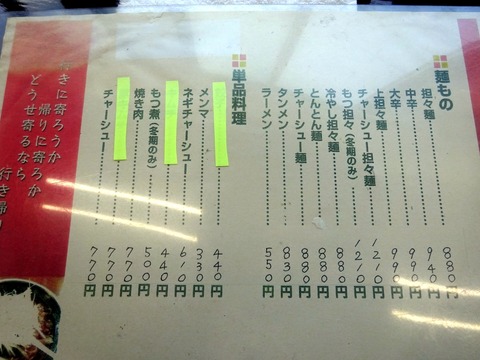 麺もの
担々麺 880円
中辛 940円
大辛 990円
上担々麺 990円
チャーシュー担々麺 1210円
もつ担々(冬期のみ) 1210円
冷やし担々麺 880円
とんとん麺 880円
チャーシュー麺 880円
タンメン 830円
ラーメン 550円
単品料理
440円
メンマ 330円
ネギチャーシュー 610円
440円
もつ煮(冬期のみ) 500円
焼き肉 770円
770円
チャーシュー 770円
行きに寄ろうか
帰りに寄ろか
どうせ寄るなら
行き帰り